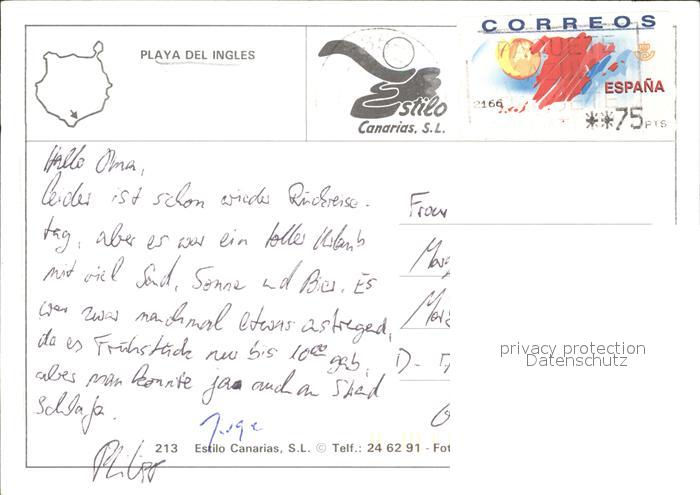 CORREOS
PLAYA DEL INGLES
Estilo
Canarias, S.L.
2166
ESPAÑA
**75 PTS
Hallo Oma,
leider ist schon wieder Rückreise-
tag, aber es war ein toller Urlaub
mit viel Sand, Sonne und Bier. Es
war zwar manchmal etwas anstregend,
da es Frühstück nur bis 10⁰⁰ gab,
aber man konnte ja auch am Strand
schlafe.
Philipp
Frau
D-
privacy protection
Datenschutz
213 Estilo Canarias, S.L. © Telf.: 24 62 91 - Fot